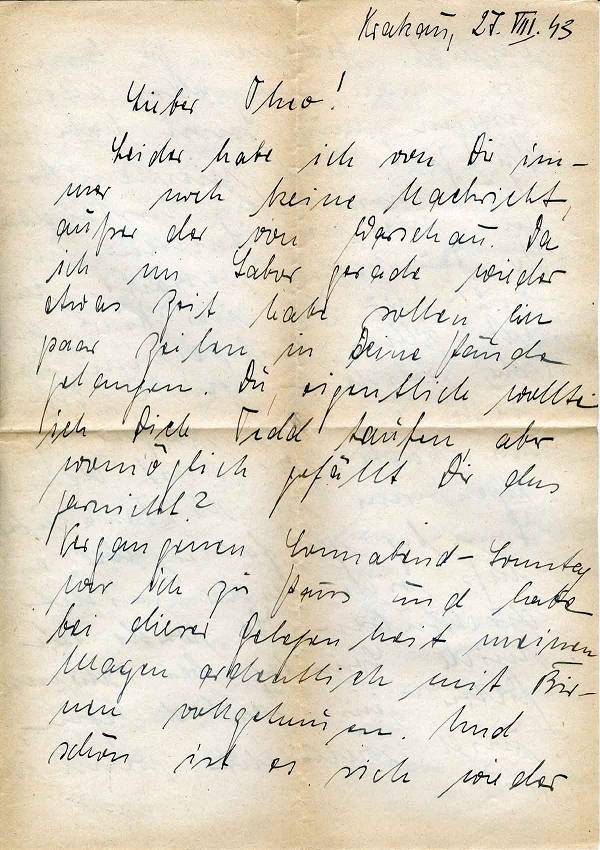 Krakau, 27. VIII. 43
Lieber Theo!
Leider habe ich von Dir im-
mer noch keine Nachricht,
außer der von Warschau. Da
ich im Labor gerade wieder
etwas Zeit habe sollen ein
paar Zeilen in Deine Hände
gelangen. Du, eigentlich wollte
ich Dich Tedd taufen, aber
womöglich gefällt Dir das
garnicht?
Vergangenen Sonnabend-Sonntag
war ich zu Haus und habe
bei dieser Gelegenheit meinen
Magen ordentlich mit Bir-
nen
. Und
schön ist es sich wieder